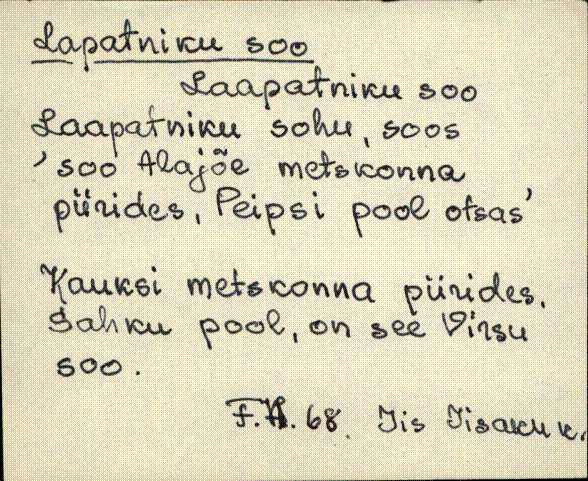 Lapatniku soo
Laapatniku soo
Laapatniku sohu, soos
'soo Alajõe metskonna
piirides, Peipsi pool otsas'
Kauksi metskonna piirides.
Sahku pool, on see Virsu
soo.
F.K. 68. Iis Iisaku k.